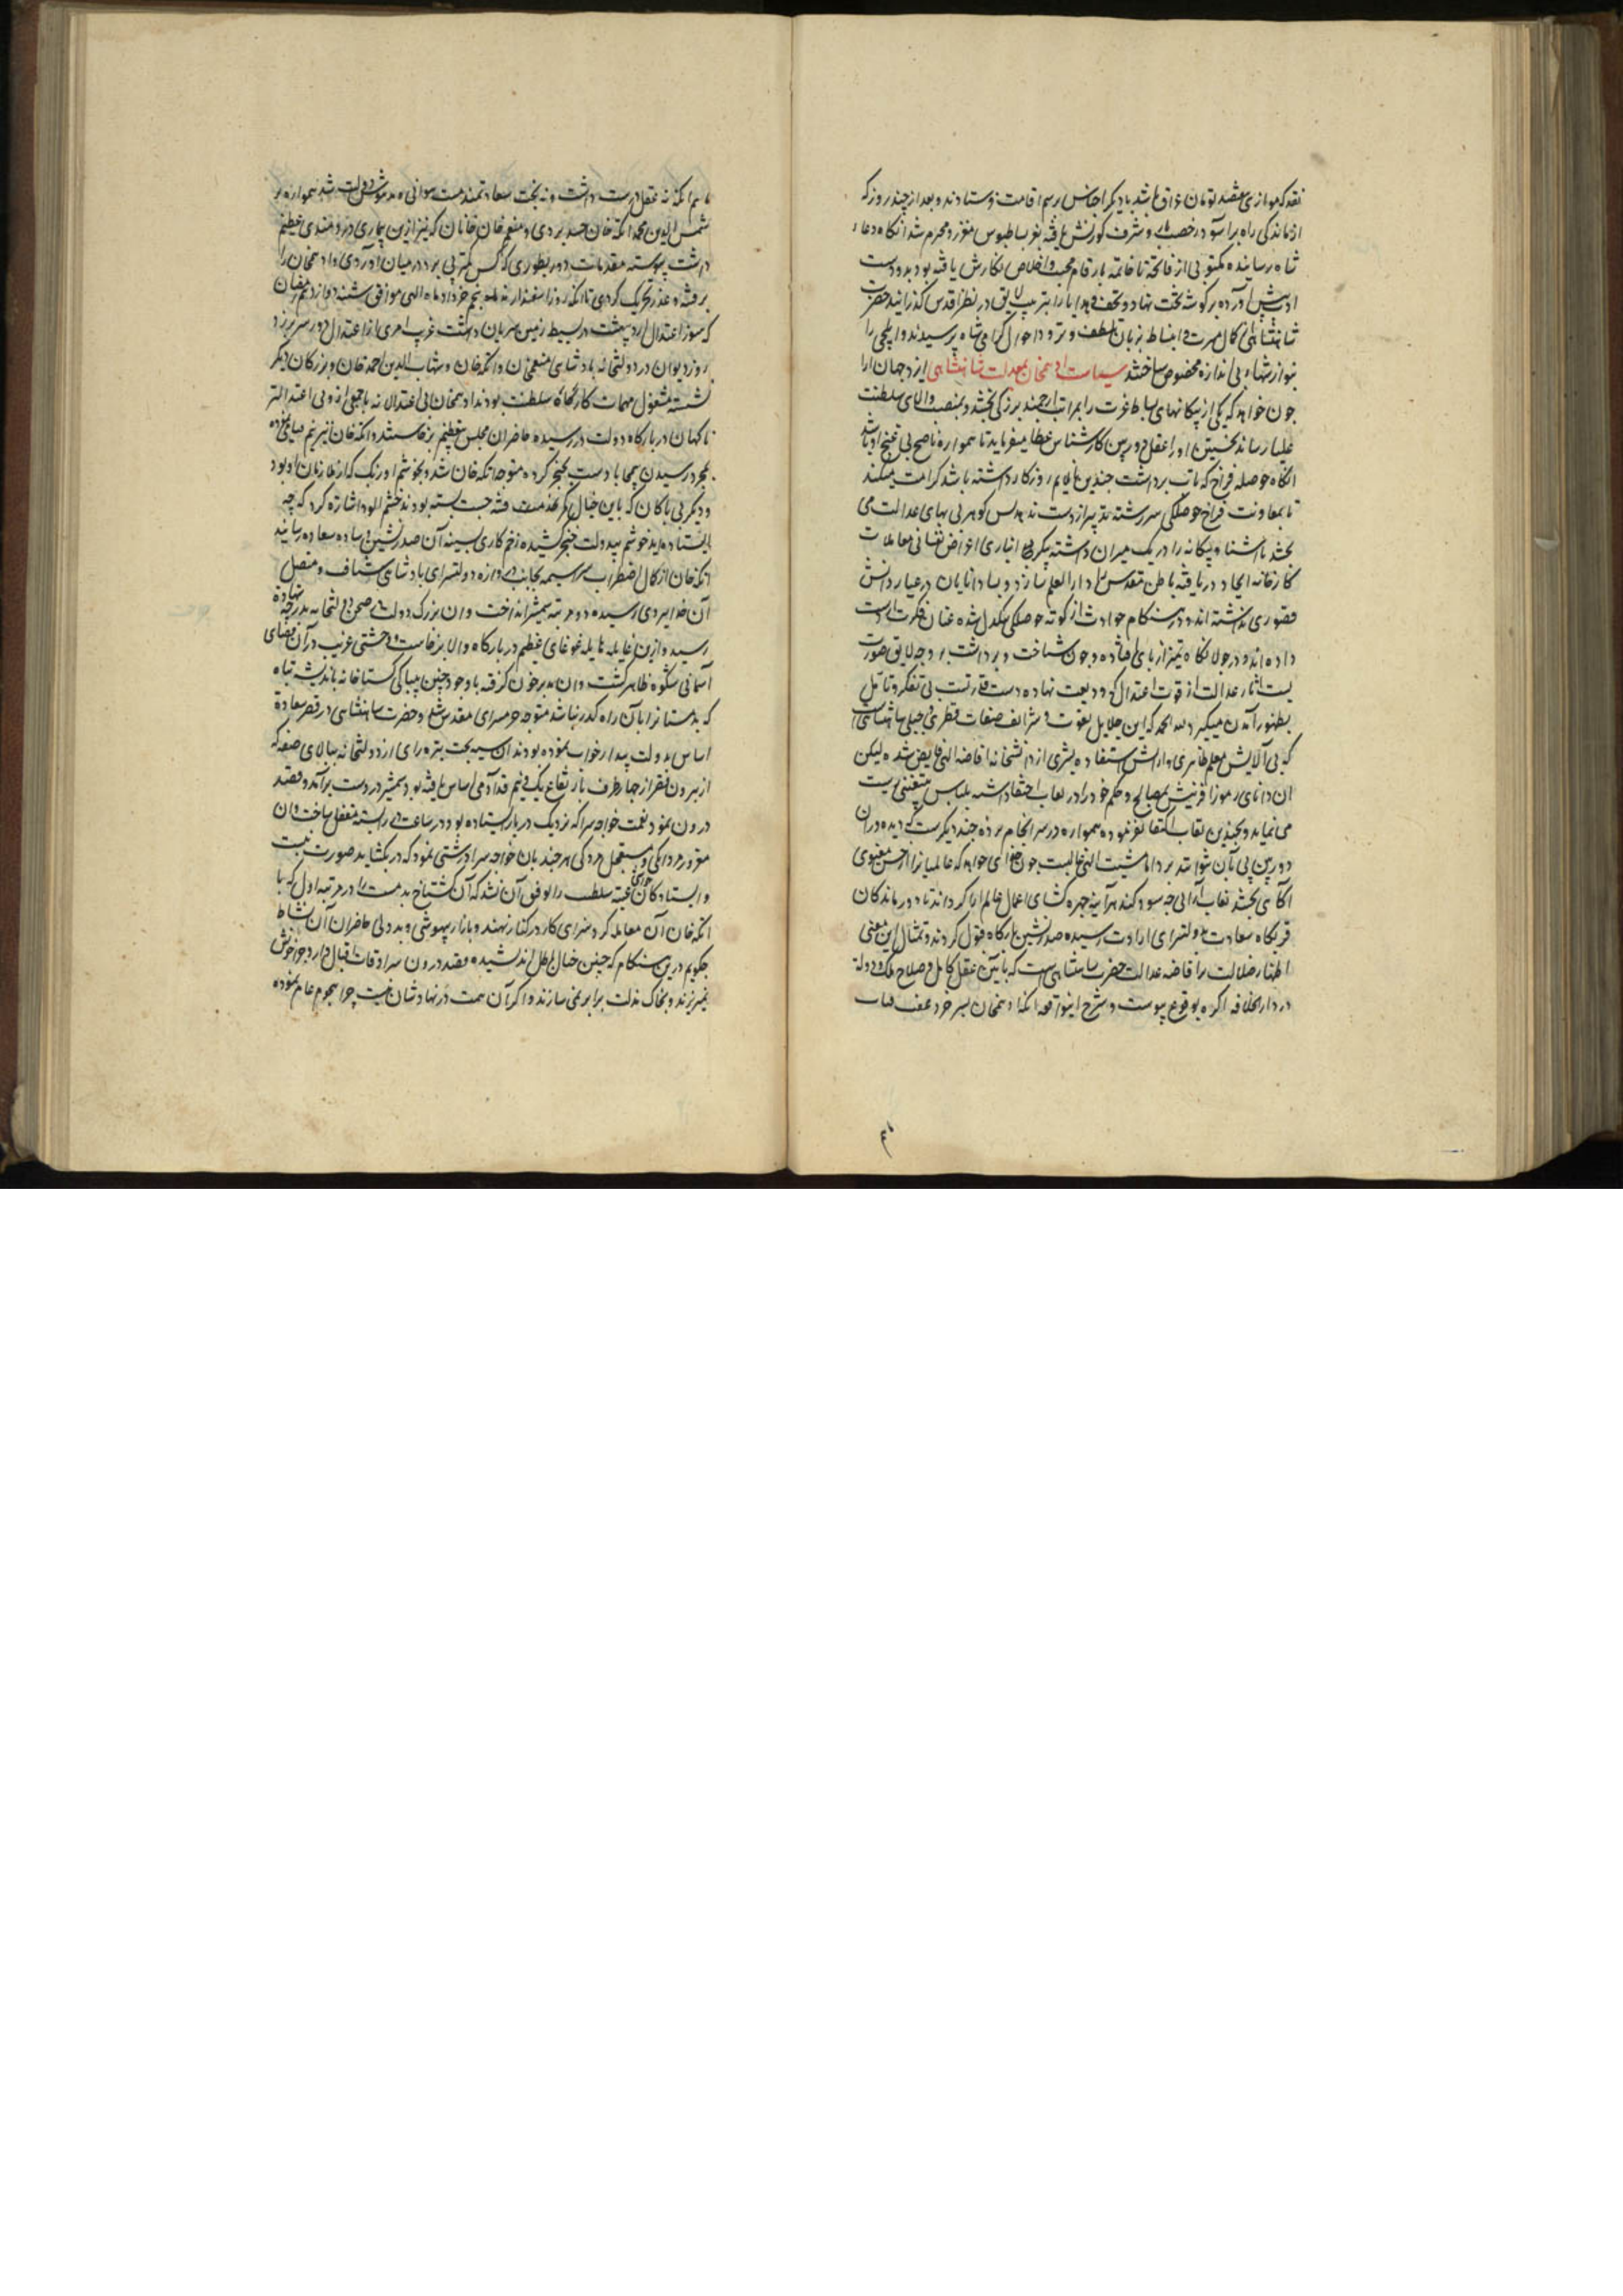 نقد که موازی هفتصد تومان عراق باشد با دیگر اجناس رسم اقامت فرستادند و بعد از چند روز که
از ماندگی راه برآسود رخصت و شرف کورنش یافته بتو بساطبوس معزز و محرم شد آنگاه دعاء
شاه رسانیده مکتوبی از فاتحه تا خاتمه بارقام محبت و اخلاص نگارش یافته بود بدو دست
ادب پیش آورده بر گوشه تخت نهاد و تحف و هدایا را بترتیب لایق در نظر اقدس گذرانید حضرت
شاهنشاهی از کمال مسرت و انبساط بزبان تلطف و تودد احوال گرامی شاه پرسیدند و ایلچی را
بنوازشهاء بی اندازه مخصوص ساختند سیاست ادهمخان بمعدلت شاهنشاهی ایزد جهان آرا
چون خواهد که یکی از یگانهای بساط عزت را بمراتب ارجمند بزرگی بخشد و بمنصب والای سلطنت
علیا رساند نخستین او را عقل دوربین کارشناس عطا میفرماید تا همواره ناصح بی غنج او باشد
آنگاه حوصله فراخ که تاب برداشت چندین ناملایم روزگار داشته باشد کرامت میکند
تا بمعاونت فراخ حوصلگی سررشته تدبیر از دست ندهد پس گوهر بی بهای عدالت می
بخشد تا آشنا و بیگانه را در یک میزان داشته پیکر بی انبازی اغراض نفسانی معاملات
کارخانه ایجاد دریافته باطن مقدس دارالعلم سازد و بسا دانایان در عیار دانش
قصوری نداشته اند و در هنگام حوادث از کوته حوصلگی تنکدل شده عنان فکرت از دست
داده اند و در جولانگاه تمیز از پای افتاده و چون شناخت و برداشت بر وجه لایق صورت
بست آثار عدالت از قوت اعتدال که ودیعت نهاده دست قدرتست بی تفکر و تامل
بظهور آمدن میگیرد لله الحمد که این جلایل نعوت و شرایف صفات فطری و جبلی شاهنشاهی است
که بی آلایش معلم ظاهری و ارایش استفاده بشری از دانشخانه افاضه الهی فایض شده لیکن
ان دانای رموز آفرینش بمصالح و حکم خود را در نقاب اختفا داشته بلباس متغنی زیست
می نماید و بچندین نقاب اکتفا نفرموده همواره در سرانجام پرده چند دیگرست که دیده وران
دوربین پی بآن نتوانند برد اما مشیت الهی غالبست چون خدای خواهد که عالمیانرا از حسن معنوی
آگاهی بخشد نقاب آرائی چه سود کند هرآینه چهره گشای اعمال عالم آرا گرداند تا دورماندگان
قربگاه سعادت بدولتسرای ارادت رسیده صدرنشین بارگاه قبول گردند و تمثال این معنی
اظهار ضلالت را قاضه عدالت حضرت شاهنشاهی است که بآئین عقل کامل و صلاح ملک و دولة
در دارالخلافه اگره بوقوع پیوست و شرح اینواقعه آنکه ادهمخان پسر خرد عفت قباب
ماهم انکه نه عقل درست داشت و نه بخت سعادتمند مست جوانی و مدهوش دولت شد همواره بر
شمس الدین محمد اتکه خان حسد بردی و منعم خان خانان که نیز ازین بیماری دردمندی عظیم
داشت پیوسته مقدمات دور بطوری که کس کمتر پی برد در میان آوردی و ادهمخان را
بر فتنه و غدر تحریک کردی تا آنکه روز اسفندارمذ پنجم خرداد ماه الهی موافق شنبه دوازدهم رمضان
که سوز اعتدال اردیبهشت در بسیط زمین سریان داشت غریب امری از اعتدال دور سر بر زد
روز دیوان در دولتخانه پادشاهی منعم خان و اتکه خان و شهاب الدین احمد خان و بزرگان دیگر
نشسته مشغول مهمات کارگاه سلطنت بودند ادهمخان بی اعتدالانه با جمعی از و بی اعتدالتر
ناگهان در بارگاه دولت در رسیده حاضران مجلس بتعظیم برخاستند و اتکه خان نیز نیم قیامی کرده
بمجرد رسیدن بیمحابا دست بخنجر کرده متوجه اتکه خان شد و بخوشم اوزبک که از ملازمان او بود
و دیگر بی باکان که باین خیال کمر بخدمت فتنه چست بسته بودند خشم آلود اشارت کرد که چه
ایستاده اید خوشم بیدولت خنجر کشیده زخم کاری بسینه آن صدرنشین وساده سعادة رسانید
اتکه خان از کمال اضطراب سراسیمه بجانب دروازه دولتسرای پادشاهی شتافت و متصل
آن خدابردی رسیده دو مرتبه شمشیر انداخت و ان بزرگ دولت در صحن دولتخانه بدرجه شهادة
رسید و ازین غایله هایله غوغای عظیم در بارگاه والا برخاست و وحشتی غریب در آن فضای
آسمانی شکوه ظاهر گشت و ان مدبر خون گرفته با وجود چنین بیباکی گستاخانه باندیشه تباه
که بدمستانرا بآن راه گذر نباشد متوجه حرمسرای مقدس شد و حضرت شاهنشاهی در قصر سعادة
اساس بدولت بیدار خواب نموده بودند ان سیه بخت تیره رای از دولتخانه ببالای صفه که
از بیرون قصر از چهار طرف بارتفاع یک و نیم قد آدمی اساس یافته بود شمشیر در دست برآمد و قصد
درون نمود نعمت خواجه سرا که نزدیک در بار ایستاده بود در ساعت در را بسته مقفل ساخت و ان
مغرور مردانگی و مستعجل مردگی هر چند بان خواجه سرا درشتی نمود که در بکشاید صورت نبست
و ایستادگان حواشی عتبه سلطنت را توفیق آن نشد که آن گستاخ بدمست را در مرتبه اول که با
اتکه خان آن معامله کرد سزای کار در کنار نهند و بازار بیهوشی و بددلی حاضران آن بساط
چگویم درین هنگام که چنین خیال باطل اندیشیده قصد درون سرادقات اقبال دارد چرا خونش
نمیریزند و بخاک مذلت برابر نمی سازند و اگر آن همت در نهاد شان نیست چرا هجوم عام نموده